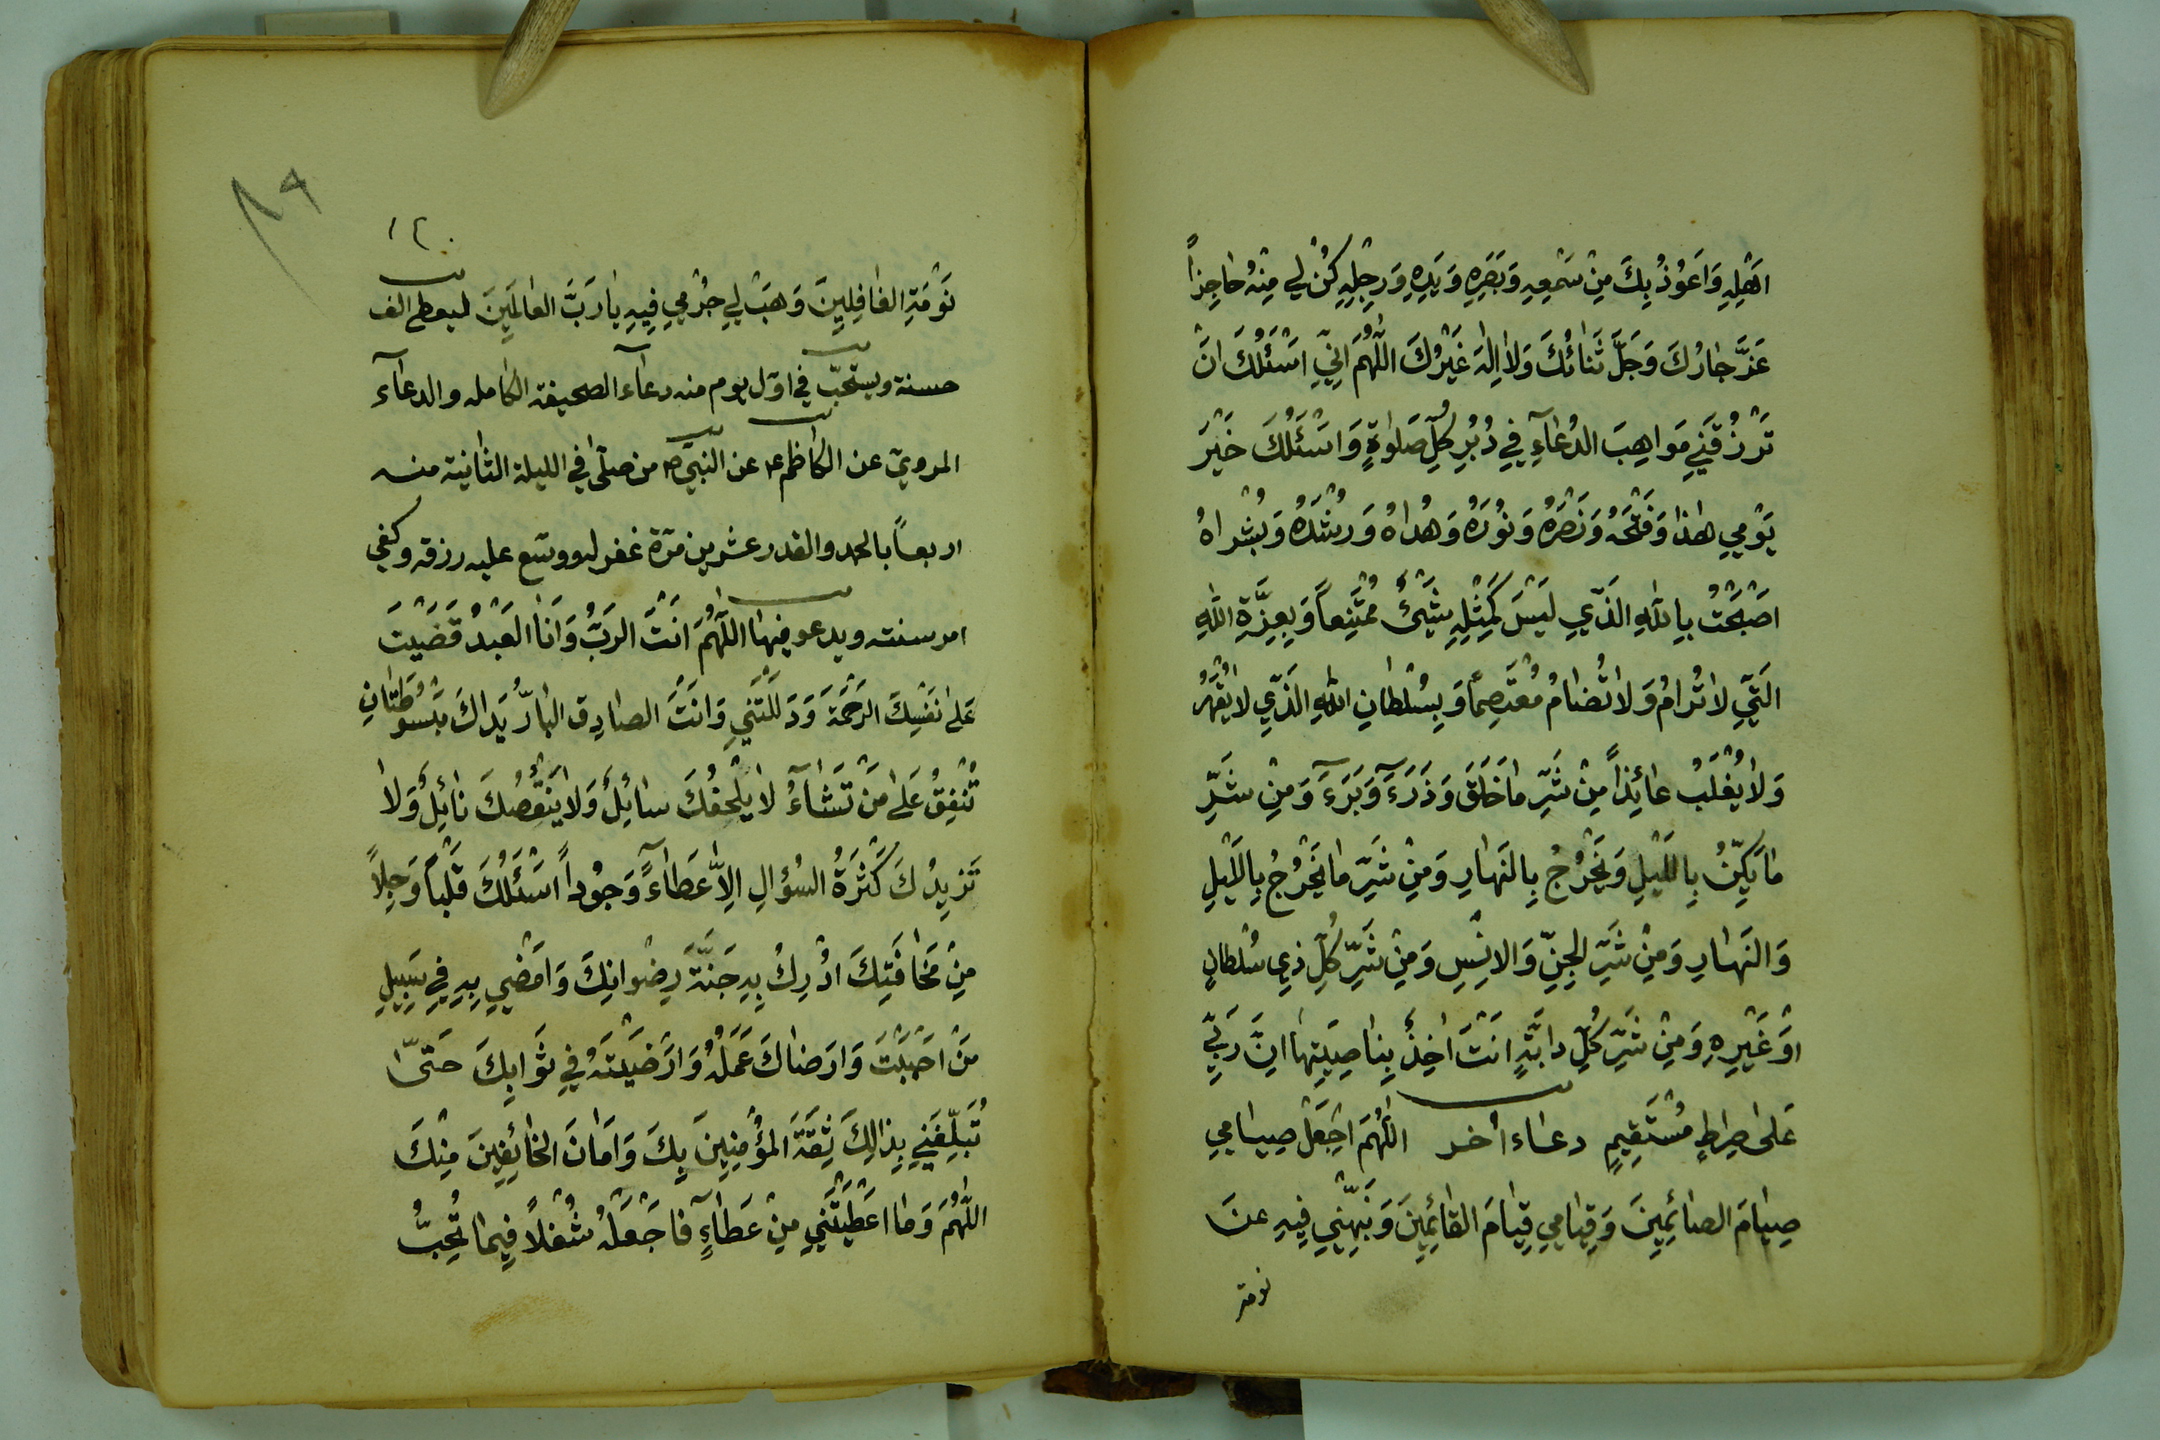 اَهْلِهِ وَاَعُوْذُ بِكَ مِنْ سَمْعِهِ وَبَصَرِهِ وَيَدِهِ وَرِجْلِهِ كُنْ لِي مِنْهُ حَاجِزاً
عَزَّ جَارُكَ وَجَلَّ ثَنَائُكَ وَلَا اِلٰهَ غَيْرُكَ اَللّٰهُمَّ اِنِّي اَسْئَلُكَ اَنْ
تَرْزُقَنِي مَوَاهِبَ الدُعَآءِ فِي دُبُرِ كُلِّ صَلوٰةٍ وَاَسْئَلُكَ خَيْرَ
يَوْمِي هٰذَا وَفَتْحَهُ وَنَصْرَهُ وَنُوْرَهُ وَهُدَاهُ وَرُشْدَهُ وَبُشْرَاهُ
اَصْبَحْتُ بِاللّٰهِ الَّذِي لَيْسَ كَمِثْلِهِ شَيْئٌ مُمْتَنِعاً وَبِعِزَّةِ اللّٰهِ
الَّتِي لَا تُرَامُ وَلَا تُضَامُ مُعْتَصِماً وَبِسُلْطَانِ اللّٰهِ الَّذِي لَا يُقْهَرُ
وَلَا يُغْلَبُ عَائِذاً مِنْ شَرِّ مَا خَلَقَ وَذَرَءَ وَبَرَءَ وَمِنْ شَرِّ
مَا يَكِنُّ بِاللَّيْلِ وَيَخْرُجُ بِالنَهَارِ وَمِنْ شَرِّ مَا يَخْرُجُ بِاللَيْلِ
وَالنَهَارِ وَمِنْ شَرِّ الْجِنِّ وَالْاِنْسِ وَمِنْ شَرِّ كُلِّ ذِي سُلْطَانٍ
اَوْ غَيْرِهِ وَمِنْ شَرِّ كُلِّ دَابَّةٍ اَنْتَ اٰخِذٌ بِنَاصِيَتِهَا اِنَّ رَبِّي
عَلٰى صِرَاطٍ مُسْتَقِيمٍ دعاء اٰخر اَللّٰهُمَّ اجْعَلْ صِيَامِي
صِيَامَ الصَائِمِينَ وَقِيَامِي قِيَامَ القَائِمِينَ وَنَبِّهْنِي فِيهِ عَنْ
نومة
٨٩
١٢٠
نَوْمَةِ الغَافِلِينَ وَهَبْ لِي جُرْمِي فِيهِ يَا رَبَّ العَالَمِينَ ليعطى الف
حسنة ويستحبّ في اوّل يوم منه دعآء الصحيفة الكامله والدعآء
المرويّ عن الكاظم ع عن النبيّ ص من صلّى في الليلة الثانية منه
اربعاً بالحمد والقدر عشرين مرّة غفر له ووسّع عليه رزقه وكفي
امر سنته ويدعو فيها اَللّٰهُمَّ اَنْتَ الرَبُّ وَاَنَا العَبْدُ قَضَيْتَ
عَلٰى نَفْسِكَ الرَحْمَةَ وَدَلَلْتَنِي وَاَنْتَ الصادِقُ البَارُّ يَدَاكَ مَبْسُوطَتَانِ
تُنْفِقُ عَلٰى مَنْ تَشَآءُ لَا يُلْحِفُكَ سائِلٌ وَلَا يَنْقُصُكَ نَائِلٌ وَلَا
تَزِيدُكَ كَثْرَةُ السُؤالِ اِلَّا عَطَاءً وَجُوداً اَسْئَلُكَ قَلْباً وَجِلاً
مِنْ مَخَافَتِكَ اُدْرِكُ بِهِ جَنَّةَ رِضْوَانِكَ وَاَمْضِي بِهِ فِي سَبِيلِ
مَنْ اَحْبَبْتَ وَاَرْضَاكَ عَمَلُهُ وَاَرْضَيْتَهُ فِي ثَوَابِكَ حَتّىٰ
تُبَلِّغَنِي بِذَالِكَ ثِقَةَ المُؤْمِنِينَ بِكَ وَاَمَانَ الخَائِفِينَ مِنْكَ
اَللّٰهُمَّ وَمَا اَعْطَيْتَنِي مِنْ عَطَاءٍ فَاجْعَلْهُ شُغْلاً فِيمَا تُحِبُّ